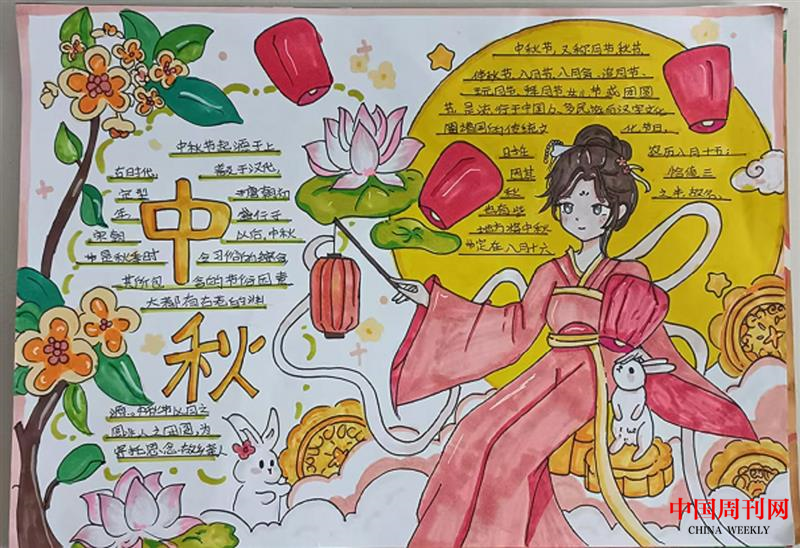 中秋节起源于上
古时代,
普及于汉代,
定型
唐朝初
年
盛行于
宋朝
以后,中秋
节是秋季时
令习俗的综合
其所包
含的节俗因素
大都有古老的渊
源。中秋节以月之
圆兆人之团圆,为
寄托思念故乡,亲人
中
秋
中秋节,又称月节秋节
仲秋节、八月节、八月会、追月节、
玩月节、拜月节女儿节或团圆
节,是流行于中国众多民族与汉字文化
圈诸国的传统文
化节日,
农历八月十五;
因其
恰值三
秋
之半故名,
也有些
地方将中秋
节定在八月十六
中国周刊网
CHINA WEEKLY